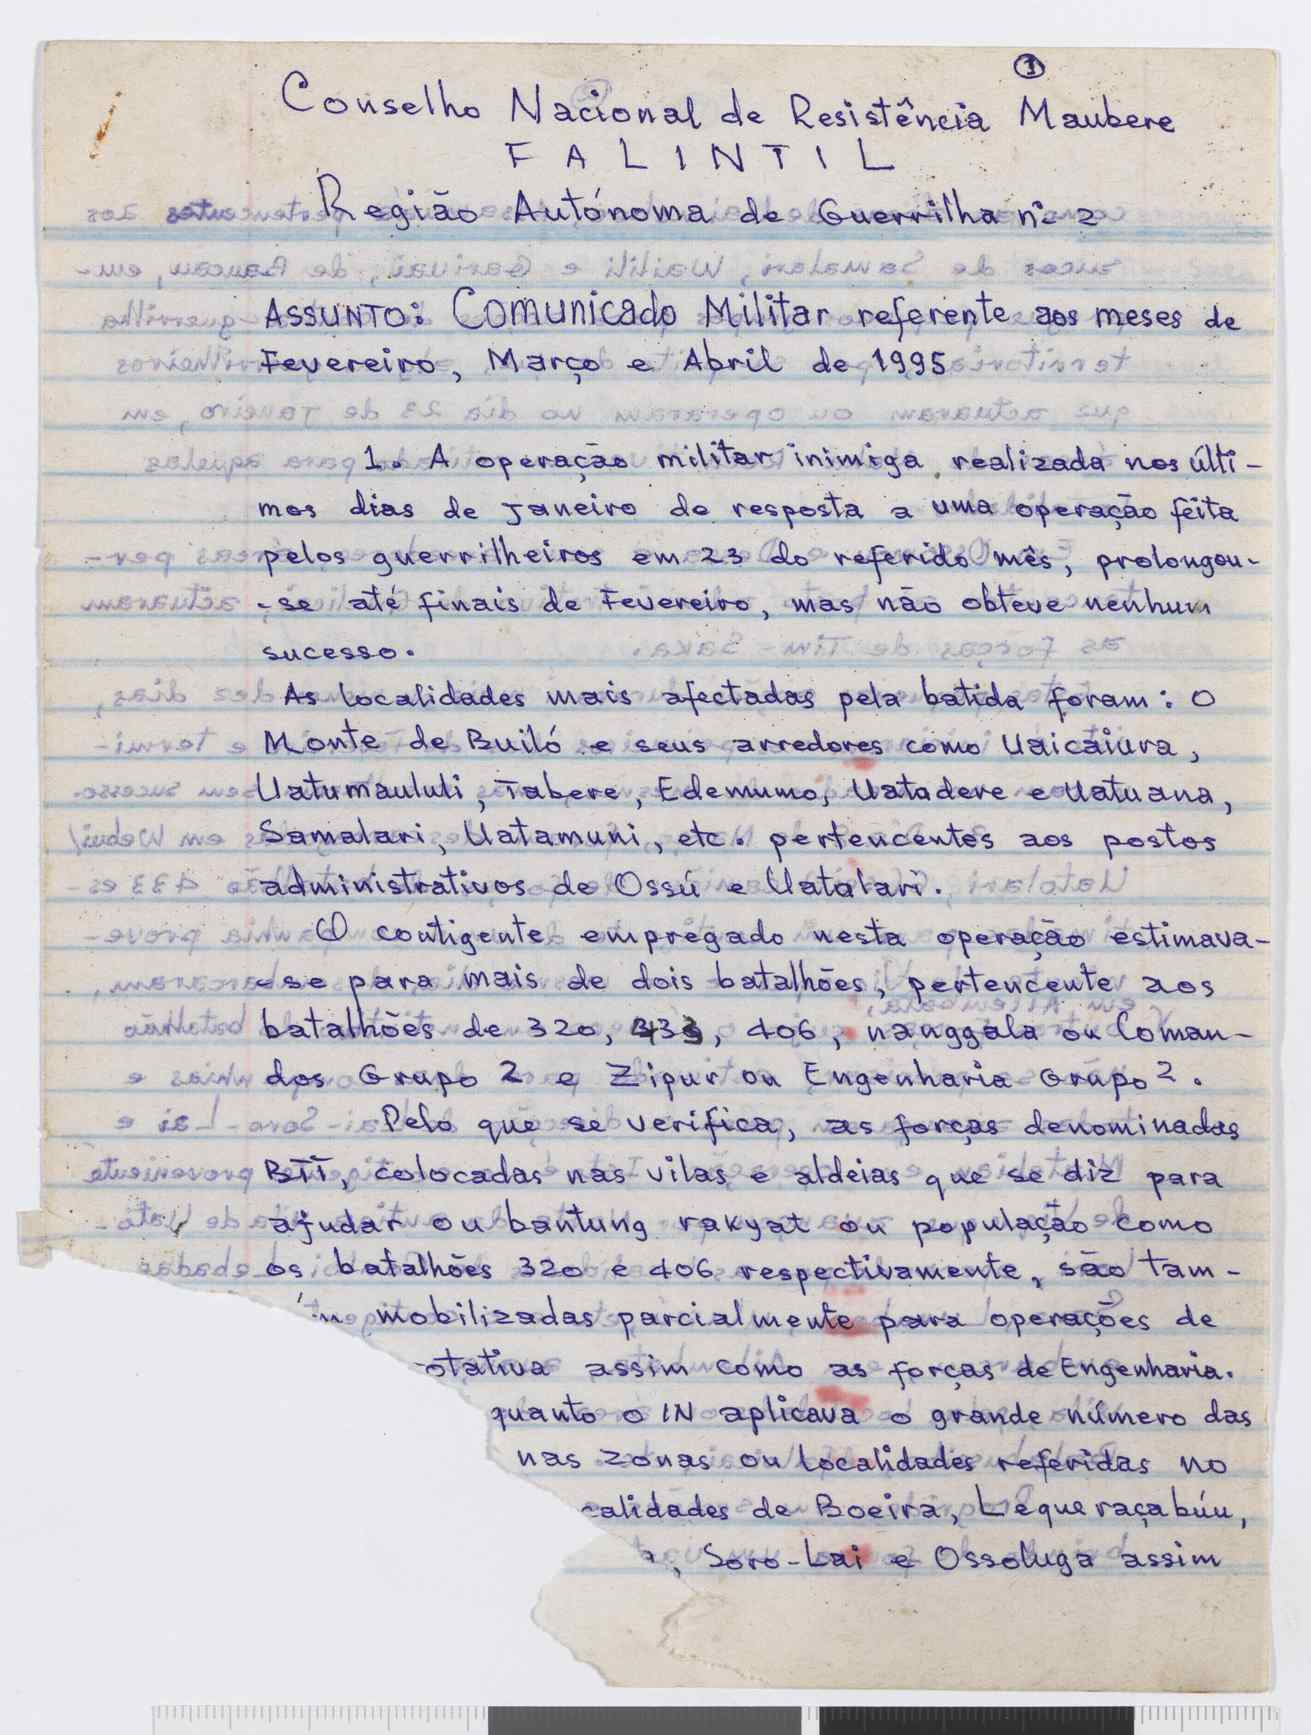 ①
Conselho Nacional de Resistência Maubere
FALINTIL
Região Autónoma de Guerrilha nº 2
ASSUNTO: Comunicado Militar referente aos meses de
Fevereiro, Março e Abril de 1995
1. A operação militar inimiga realizada nos últi-
mos dias de Janeiro de resposta a uma operação feita
pelos guerrilheiros em 23 do referido mês, prolongou-
-se até finais de Fevereiro, mas não obteve nenhum
sucesso.
As localidades mais afectadas pela batida foram: O
Monte de Builó e seus arredores como Uaicaiura,
Uatumaululi, Tabere, Edemumo, Uatadere e Uatuana,
Samalari, Uatamuni, etc. pertencentes aos postos
administrativos de Ossú e Uatalari.
O contigente empregado nesta operação estimava-
-se para mais de dois batalhões, pertencente aos
batalhões de 320, 433, 406, nanggala ou Coman-
dos Grupo 2 e Zipur ou Engenharia Grupo 2.
Pelo que se verifica, as forças denominadas
BTT, colocadas nas vilas e aldeias que se diz para
ajudar ou bantung rakyat ou população como
os batalhões 320 e 406 respectivamente, são tam-
mobilizadas parcialmente para operações de
otativa assim como as forças de Engenharia.
quanto o IN aplicava o grande número das
nas zonas ou localidades referidas no
calidades de Boeira, Lequeraçabúu,
a, Soro-Lai e Ossoluga assim